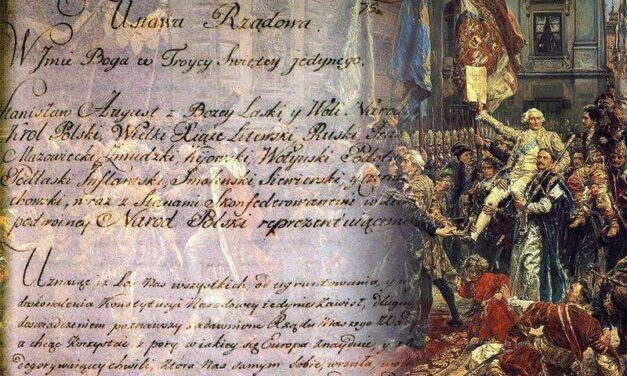 75a
Ustawa Rządowa.
W Jmie Boga w Troycy Swiętey jedynego.
Stanisław August z Bożey Łaski y Woli Narod
Krol Polski, Wielki Xiąże Litewski, Ruski,
Mazowiecki, Zmudzki, Kijowski, Wołyński, Podol
Podlaski, Inflantski, Smolenski, Siewierski, y Czerni
chowski, wraz z Stanami Skonfederowanemi w li
podwoyney Narod Polski reprezentuiącemi
Uznaiąc iż Los nas wszystkich od ugruntowania, y w
doskonalenia Konstytucyi Narodowey iedynie zawisł, długim
doswiadczeniem poznawszy zadawnione Rządu Naszego Wad
a chcąc korzystać z pory w iakiey się Europa znayduie, y z
dogorywaiącey chwili, ktora Nas samym Sobie wrociła, wo